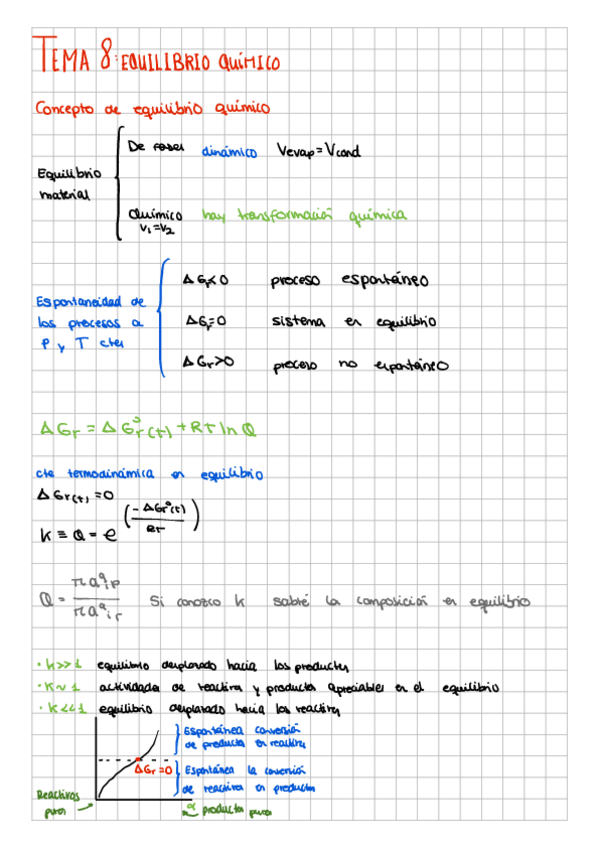 TEMA 8: EQUILIBRIO QUÍMICO
Concepto de equilibrio químico
Equilibrio material
De fases dinámico Vevap = Vcond
Químico hay transformación química
V₁=V₂
Espontaneidad de los procesos a P y T ctes
ΔGr<0 proceso espontáneo
ΔGr=0 sistema en equilibrio
ΔGr>0 proceso no espontáneo
ΔGr = ΔG°r(t) + RT ln Q
cte termodinámica en equilibrio
ΔGr(t) = 0
K ≡ Q = e^(-ΔGr°(t)/RT)
Q = πa^q ip / πa^q ir Si conozco K sabré la composición en equilibrio
· K>>1 equilibrio desplazado hacia los productos
· K~1 actividades de reactivos y productos apreciables en el equilibrio
· K<<1 equilibrio desplazado hacia los reactivos
Espontánea conversión
de productos en reactivos
ΔGr=0
Espontánea la conversión
de reactivos en productos
Reactivos
puros
productos puros